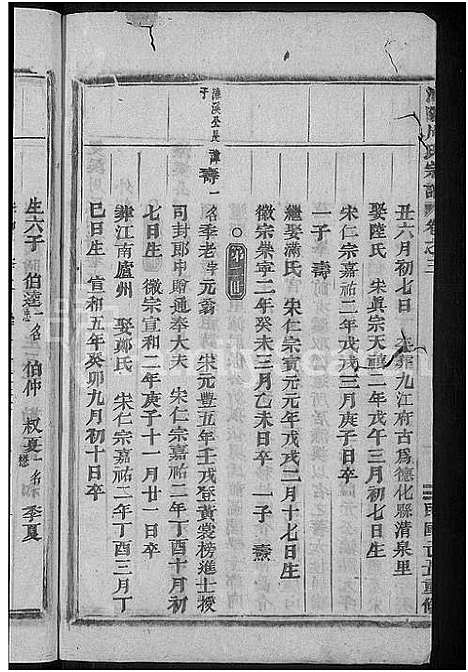 周氏宗譜 卷之三
丑六月初七日 夫葬九江府古為德化縣清泉里
娶陸氏 宋真宗天禧二年戊午三月初七日生
宋仁宗嘉祐二年戊戌三月庚子日卒
一子 壽
繼娶滿氏 宋仁宗寶元元年戊寅二月十七日生
徽宗崇寧二年癸未三月乙未日卒 一子 燾
濂溪公長子 諱壽 一名季老 字元翁 宋元豐五年壬戌登黃裳榜進士授
司封郎中贈通奉大夫 宋仁宗嘉祐二年丁酉十月初
七日生 徽宗宣和二年庚子十一月廿一日卒
葬江南廬州 娶鄭氏 宋仁宗嘉祐二年丁酉三月丁
巳日生 宣和五年癸卯九月初十日卒
生六子 伯逵 一名 伯仲 叔夏 一名懋 季夏